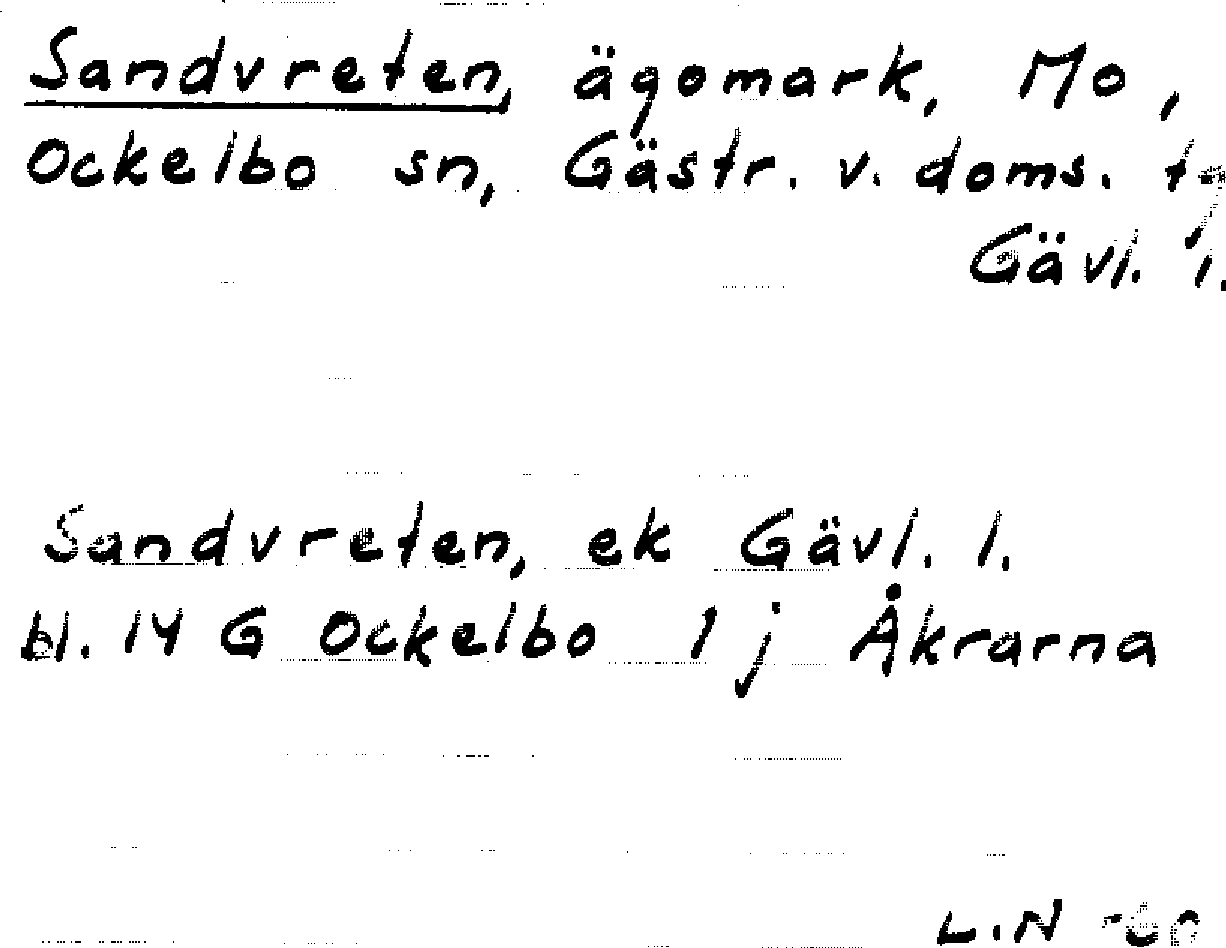 Sandvreten, ägomark, Mo,
Ockelbo sn, Gästr. v. doms. tg
Gävl. l.
Sandvreten, ek Gävl. l.
bl. 14 G Ockelbo 1 j Åkrarna
L.N